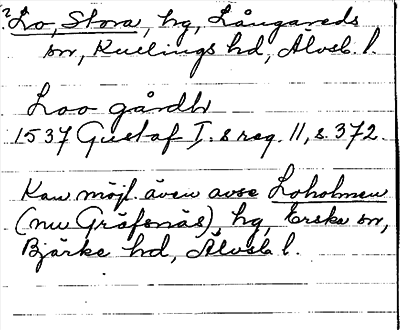 ? Lo, Stora, hg, Långareds
sn, Kullings hd, Älvsb. l.
Loo gårdh
1537 Gustaf I:s reg. 11, s. 372.
Kan möjl. även avse Loholmen
(nu Gräfsnäs), hg, Erska sn,
Bjärke hd, Älvsb l.